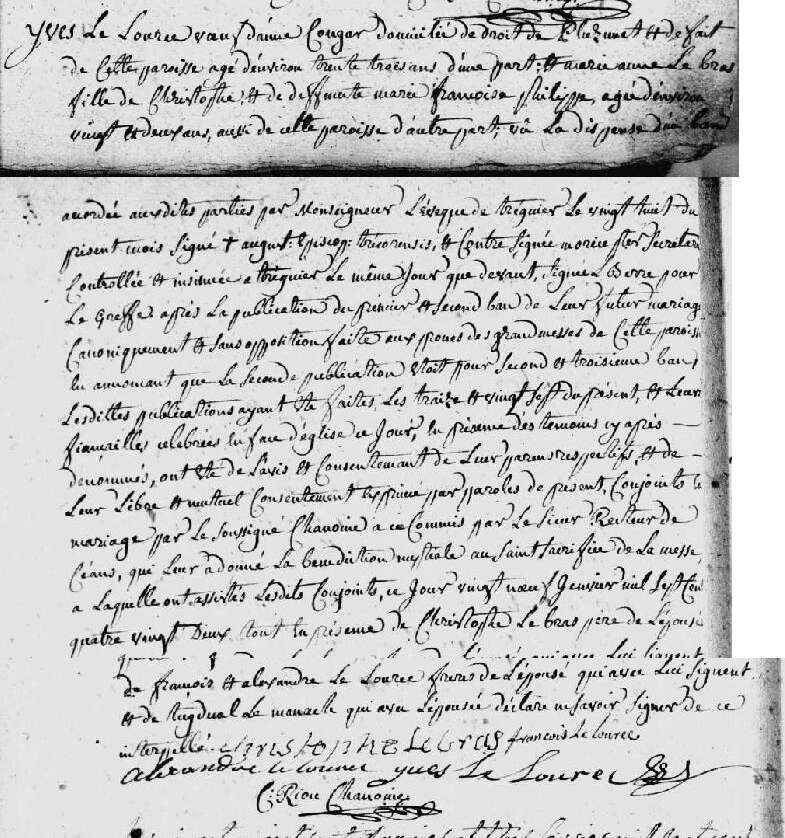 Yves Le Lourec vœuf d'anne Congar domicilié de droit de Pluzunet et de fait
de Cette paroisse agé d'environ trente trois ans d'une part; et marie anne Le bras
fille de Christophe, et de deffunte marie françoise philippe, agée d'environ
vingt et deux ans, aussi de cette paroisse d'autre part; vû La dispense d'un ban
accordée auxdites parties par Monseigneur L'évêque de tréguier Le vingt huit du
présent mois Signé † august: Episcop: trecorensis, et Contre Signée
Controllée et insinuée a tréguier Le même Jour que devant, Signé pour
Le Greffe, après La publication du prémier et second ban de Leur futur mariag
Canoniquement et sans opposition faite aux prones des grandmesses de Cette paroiss
En annonçant que La seconde publication étoit pour second et troisieme ban,
Lesdittes publications ayant été faites Les traize et vingt sept du présent, et Leurs
fiancailles celebrées En face d'église ce Jour, En présence des temoins cy après
dénommés, ont été de L'avis et Consentement de Leur parens respectifs, et de
Leur Libre et mutuel Consentement Exprimé par paroles de présent, Conjoints e
mariage par Le Soussigné Chanoine a ce Commis par Le Sieur Recteur de
Céans, qui Leur a donné La benediction nuptiale au Saint Sacrifice de La messe,
a Laquelle ont assistés Lesdits Conjoints, ce Jour vingt nœuf Genvier mil Sept Cen
quatre vingt Deux tout En présence de Christophe Le bras pere de L'épousé
de françois et alexandre Le Lourec freres de L'épousé qui avec Lui Signent
et de tugdual Le manach qui avec L'épousée déclare ne savoir Signer de ce
interpellé. christophe Le bras françois Le lourec
alexandre le lourec yves Le Lourec
C: Riou Chanoine